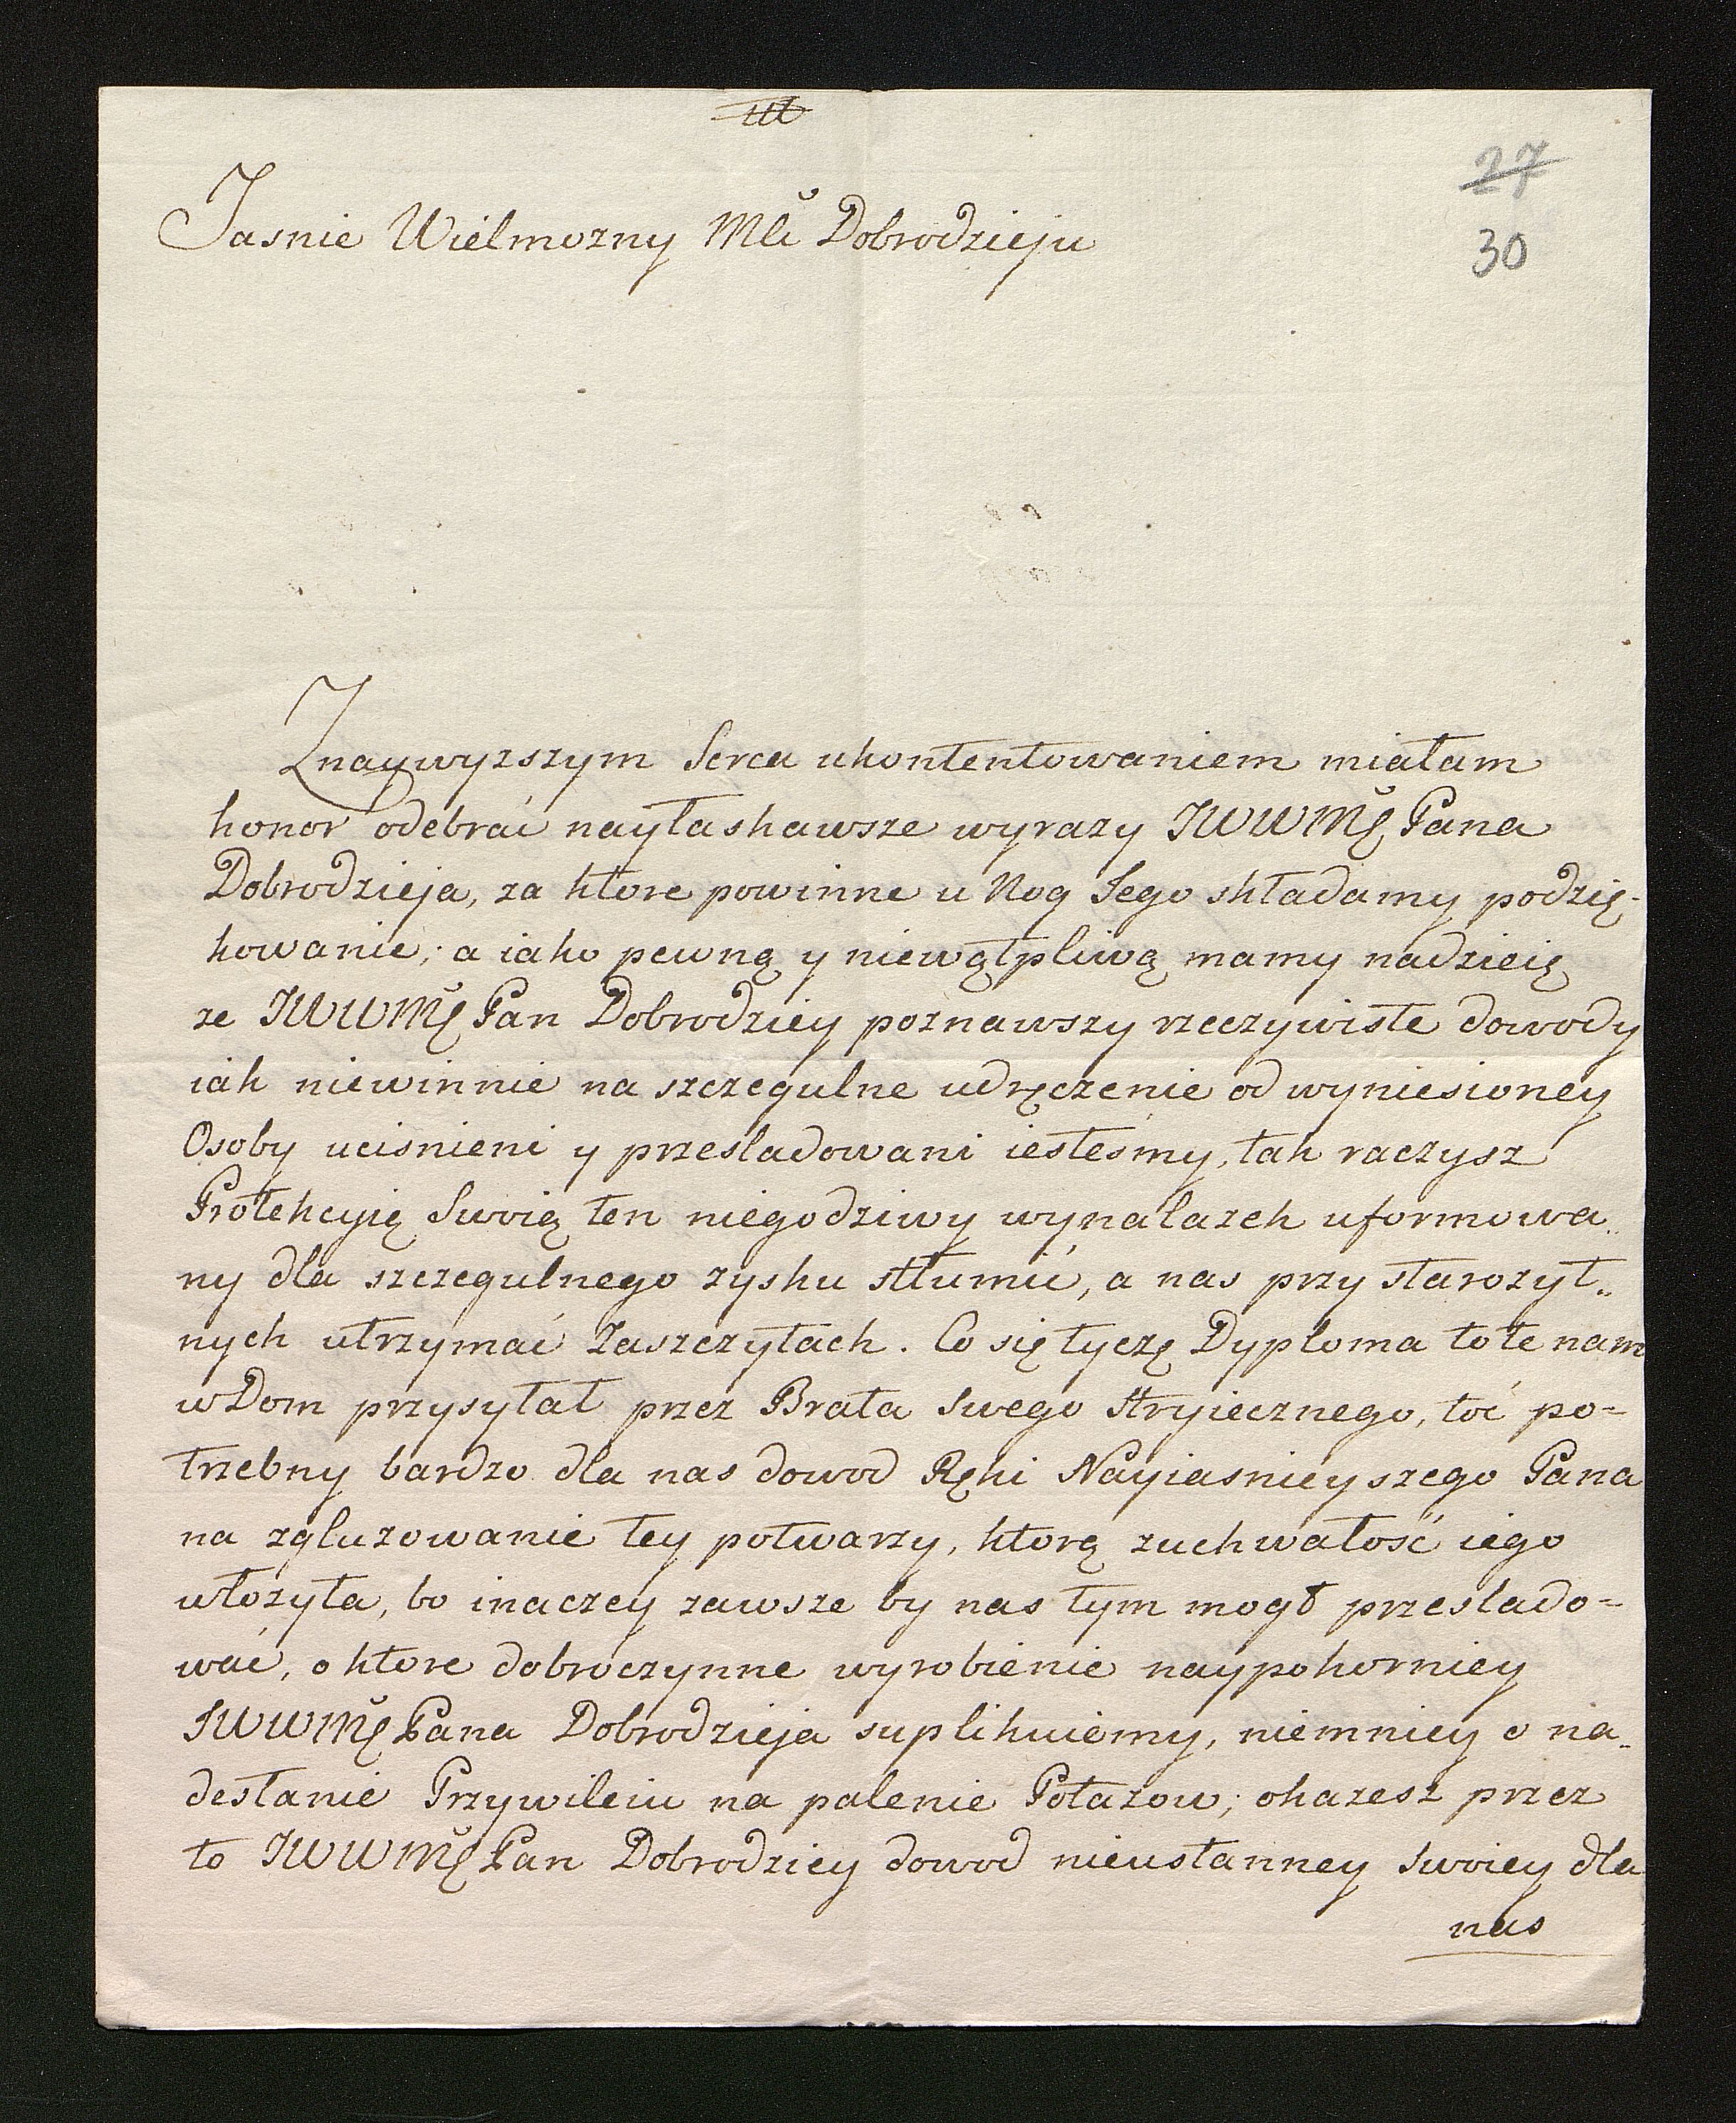 27
30
Jasnie Wielmozny Mći Dobrodzieju
Znaywyzszym Serca ukontentowaniem miałam
honor odebrać nayłaskawsze wyrazy JWWMĘ Pana
Dobrodzieja, za ktore powinne u Nog Jego składamy podzię-
kowanie; a iako pewną y niewątpliwą mamy nadzieię
ze JWWMĘ Pan Dobrodziey poznawszy rzeczywiste dowody
iak niewinnie na szczegulne udręczenie od wyniesioney
Osoby ucisnieni y przesladowani iestesmy, tak raczysz
Protekcyią Swoią ten niegodziwy wynalazek uformowa..
ny dla szczegulnego zysku stłumić, a nas przy starozyt..
nych utrzymać Zaszczytach. Co się tyczę Dyploma to te nam
w Dom przysyłał przez Brata swego stryiecznego, toć po-
trzebny bardzo dla nas dowod Ręki Nayiasnieyszego Pana
na zgluzowanie tey potwarzy, ktorą zuchwałość iego
włozyła, bo inaczey zawsze by nas tym mogł przeslado-
wać, o ktore dobroczynne wyrobienie naypokorniey
JWWMĘ Pana Dobrodzieja suplikuiemy, niemniey o na..
desłanie Przywileiu na palenie Potazow; okazesz przez
to JWWMĘ Pan Dobrodziey dowod nieustanney swoiey dla
nas